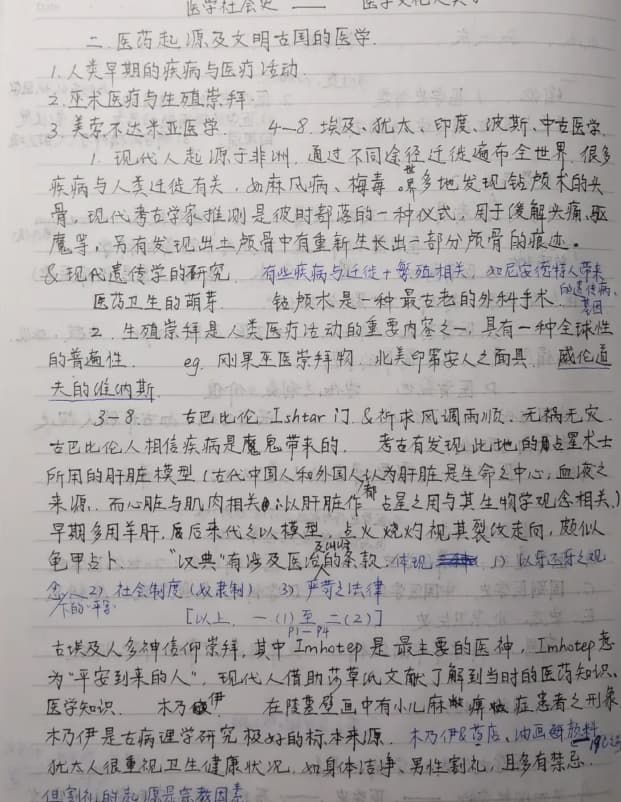 医学社会史 —— 医学文化人类学
二. 医药起源及文明古国的医学.
1. 人类早期的疾病与医疗活动.
2. 巫术医疗与生殖崇拜.
3. 美索不达米亚医学. 4-8. 埃及、犹太、印度、波斯、中古医学.
1. 现代人起源于非洲, 通过不同途径迁徙遍布全世界, 很多
疾病与人类迁徙有关, 如麻风病、梅毒。世界多地发现钻颅术的头
骨, 现代考古学家推测是彼时部落的一种仪式, 用于缓解头痛、驱
魔等, 另有发现出土颅骨中有重新生长出一部分颅骨的痕迹。
&现代遗传学的研究 有些疾病与迁徙+繁殖相关, 如尼安德特人带来
的遗传病
基因
医药卫生的萌芽. 钻颅术是一种最古老的外科手术.
2. 生殖崇拜是人类医疗活动的重要内容之一, 具有一种全球性
的普遍性. eg. 刚果巫医崇拜物. 北美印第安人之面具. 威伦道
夫的维纳斯.
3-8. 古巴比伦 Ishtar 门. &祈求风调雨顺、无祸无灾.
古巴比伦人相信疾病是魔鬼带来的. 考古有发现此地的占星术士
所用的肝脏模型 (古代中国人和外国人认为肝脏是生命之中心, 血液之
来源, 而心脏与肌肉相关 ∴以肝脏作占星之用都与其生物学观念相关.)
早期多用羊肝, 后来代之以模型, 点火烧灼视其裂纹走向, 颇似
龟甲占卜. “汉典”有涉及医治的条款. 体现 1) 以牙还牙之观
念 下的“平等” 2) 社会制度 (奴隶制) 3) 严苛之法律
[以上. 一 (1) 至 二 (2)]
P1-P4
古埃及人多神信仰崇拜, 其中 Imhotep 是最主要的医神, Imhotep 意
为“平安到来的人”, 现代人借助莎草纸文献了解到当时的医药知识、
医学知识. 木乃伊. 在陵墓壁画中有小儿麻痹症患者之形象
木乃伊是古病理学研究极好的标本来源. 木乃伊&药店、油画颜料
犹太人很重视卫生健康状况, 如身体洁净、男性割礼, 且多有禁忌.
但割礼的起源是宗教因素